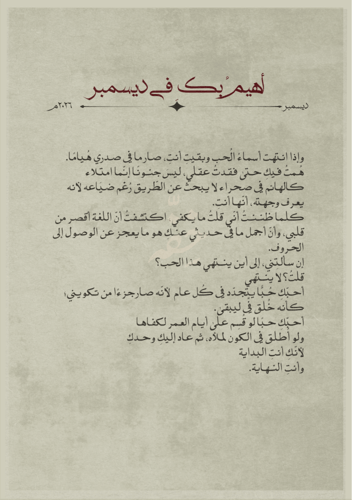 أهيمُ بِك في ديسمبر
ديسمبر ٢٠٢٦م
وإذا انتهت أسماءُ الْحب وبقيت أنتِ، صار ما في صدري هُيامًا.
هَمتُ فيك حتى فقدتُ عقلي، ليس جنونًا إنّما امتلاء
كالهائم في صحراء لا يبحثُ عن الطريق رُغم ضياعه لأنه
يعرف وجهتهُ، أنها أنت.
كلما ظننتُ أنّي قلتُ ما يكفي، اكتشفتُ أنّ اللغة أقصر من
قلبي، وأنّ أجمل ما في حديثي عنك هو ما يعجز عن الوصول إلى
الحروف.
إن سألتني، إلى أين ينتهي هذا الحب؟
قلتُ؟ لا ينتهي
أحبّك حُبًا يتجدّد في كُل عام لأنّه صار جزءًا من تكويني،
كأنه خُلق في ليبقىٰ.
أحبّك حبًا لو قسم على أيام العمر لكفاها
ولو أطلق في الكون لملأه، ثم عاد إليك وحدك
لأنّك أنتَ البداية
وأنتَ النهاية.